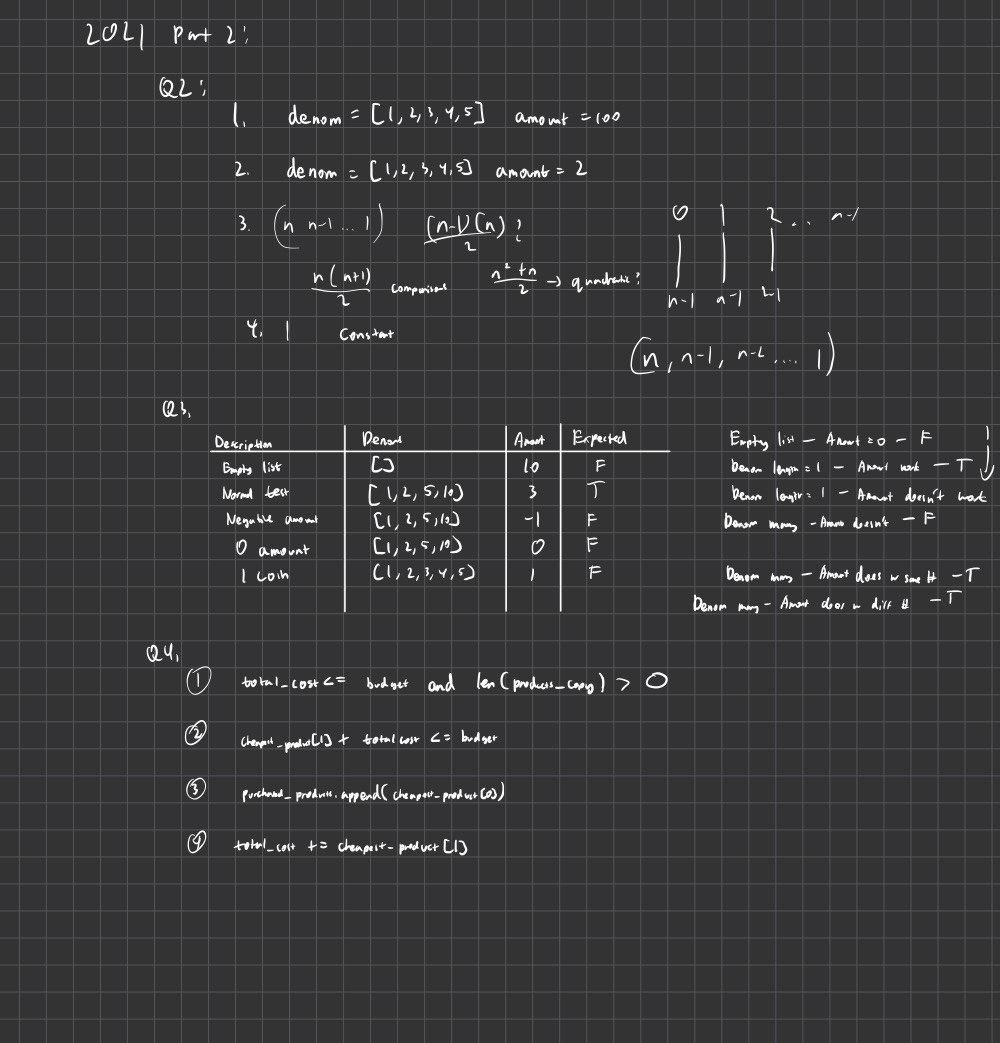 2021 Part 2:
Q2:
1. denom = [1, 2, 3, 4, 5] amount = 100
2. denom = [1, 2, 3, 4, 5] amount = 2
3. (n n-1 ... 1) (n-1)(n)/2 ?
n(n+1)/2 comparisons n²+n/2 → quadratic?
0 1 2 ... n-1
n-1 n-1
4. 1 constant
(n, n-1, n-2 .... 1)
Q3.
Description Denom Amount Expected
Empty list [] 10 F
Normal test [1, 2, 5, 10] 3 T
Negative amount [1, 2, 5, 10] -1 F
0 amount [1, 2, 5, 10] 0 F
1 coin [1, 2, 3, 4, 5] 1 F
Empty list - Amount = 0 - F
Denom length = 1 - Amount work - T
Denom length = 1 - Amount doesn't work
Denom many - Amount doesn't - F
Denom many - Amount does w same # - T
Denom many - Amount does w diff # - T
Q4.
① total_cost <= budget and len(products_copy) > 0
② cheapest_product[1] + total cost <= budget
③ purchased_products.append(cheapest_product[0])
④ total_cost += cheapest_product[1]